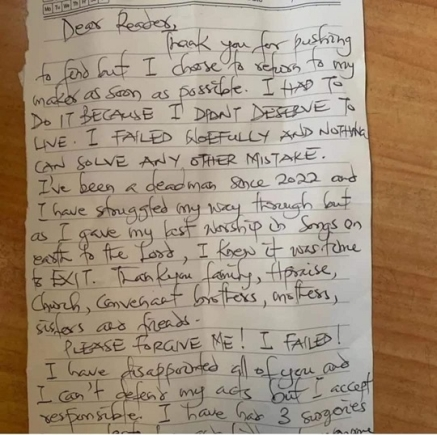 Dear Reader,
Thank you for pushing
to find but I chose to return to my
maker as soon as possible. I HAD TO
DO IT BECAUSE I DIDNT DESERVE TO
LIVE. I FAILED WOEFULLY AND NOTHING
CAN SOLVE ANY OTHER MISTAKE.
I've been a deadman since 2022 and
I have struggled my way through but
as I gave my last worship in songs on
earth to the Lord, I knew it was time
to EXIT. Thankyou family, Hpraise,
Church, Convenant brothers, mothers,
sisters and friends.
PLEASE FORGIVE ME! I FAILED!
I have disappointed all of you and
I can't defend my acts but I accept
responsible. I have had 3 surgeries